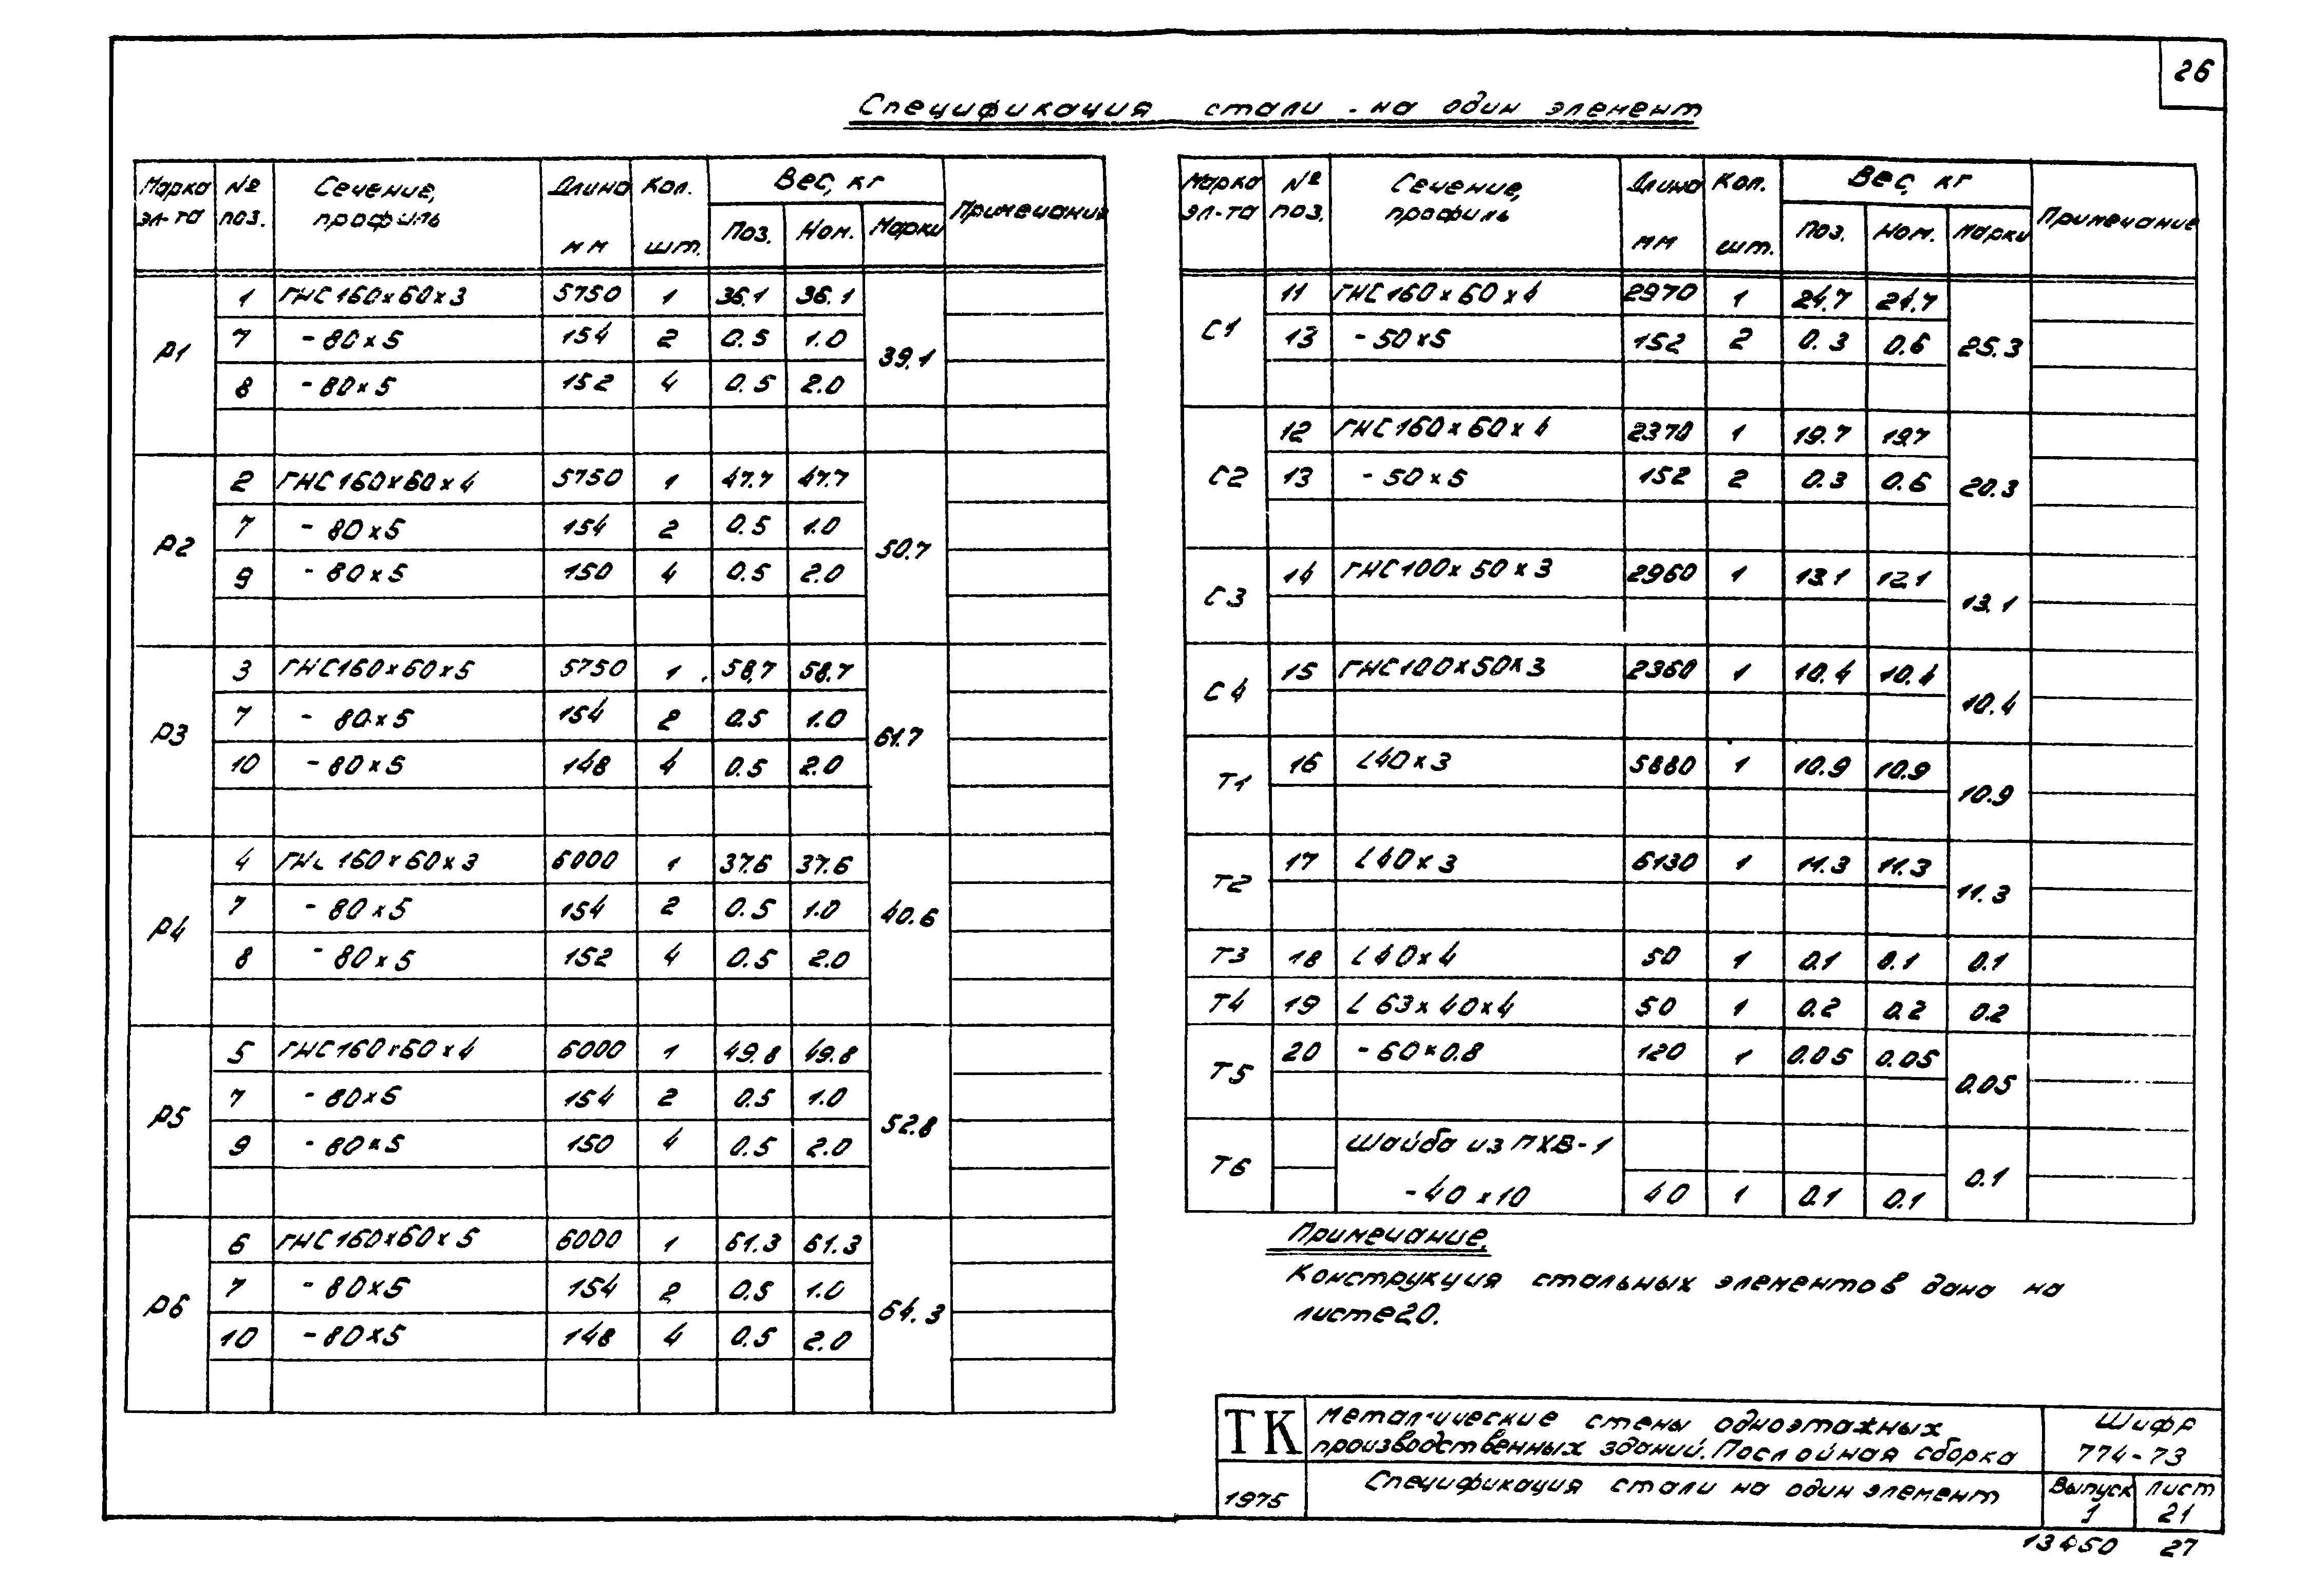 26
Спецификация стали на один элемент
Марка эл-та № поз. Сечение, профиль Длина мм Кол. шт. Вес, кг Поз. Ном. Марки Примечание
Р1 1 ГНС 160х60х3 5750 1 36.1 36.1 39.1
7 - 80х5 154 2 0.5 1.0
8 - 80х5 152 4 0.5 2.0
Р2 2 ГНС 160х60х4 5750 1 47.7 47.7 50.7
7 - 80х5 154 2 0.5 1.0
9 - 80х5 150 4 0.5 2.0
Р3 3 ГНС 160х60х5 5750 1 58,7 58.7 61.7
7 - 80х5 154 2 0.5 1.0
10 - 80х5 148 4 0.5 2.0
Р4 4 ГНС 160х60х3 6000 1 37.6 37.6 40.6
7 - 80х5 154 2 0.5 1.0
8 - 80х5 152 4 0.5 2.0
Р5 5 ГНС 160х60х4 6000 1 49.8 49.8 52.8
7 - 80х5 154 2 0.5 1.0
9 - 80х5 150 4 0.5 2.0
Р6 6 ГНС 160х60х5 6000 1 61.3 61.3 64.3
7 - 80х5 154 2 0.5 1.0
10 - 80х5 148 4 0.5 2.0
Марка эл-та № поз. Сечение, профиль Длина мм Кол. шт. Вес, кг Поз. Ном. Марки Примечание
С1 11 ГНС 160х60х4 2970 1 24.7 24.7 25.3
13 - 50х5 152 2 0.3 0.6
С2 12 ГНС 160х60х4 2370 1 19.7 19.7 20.3
13 - 50х5 152 2 0.3 0.6
С3 14 ГНС 100х50х3 2960 1 13.1 12.1 13.1
С4 15 ГНС 100х50х3 2360 1 10.4 10.4 10.4
Т1 16 L40х3 5880 1 10.9 10.9 10.9
Т2 17 L40х3 6130 1 11.3 11.3 11.3
Т3 18 L40х4 50 1 0.1 0.1 0.1
Т4 19 L 63х40х4 50 1 0.2 0.2 0.2
Т5 20 - 60х0.8 120 1 0.05 0.05 0.05
Т6 Шайба из ПХВ-1
- 40х10 40 1 0.1 0.1 0.1
Примечание.
Конструкция стальных элементов дана на
листе 20.
ТК Металлические стены одноэтажных
производственных зданий. Послойная сборка
Шифр
774-73
1975 Спецификация стали на один элемент
Выпуск Лист
1 21
13450 27